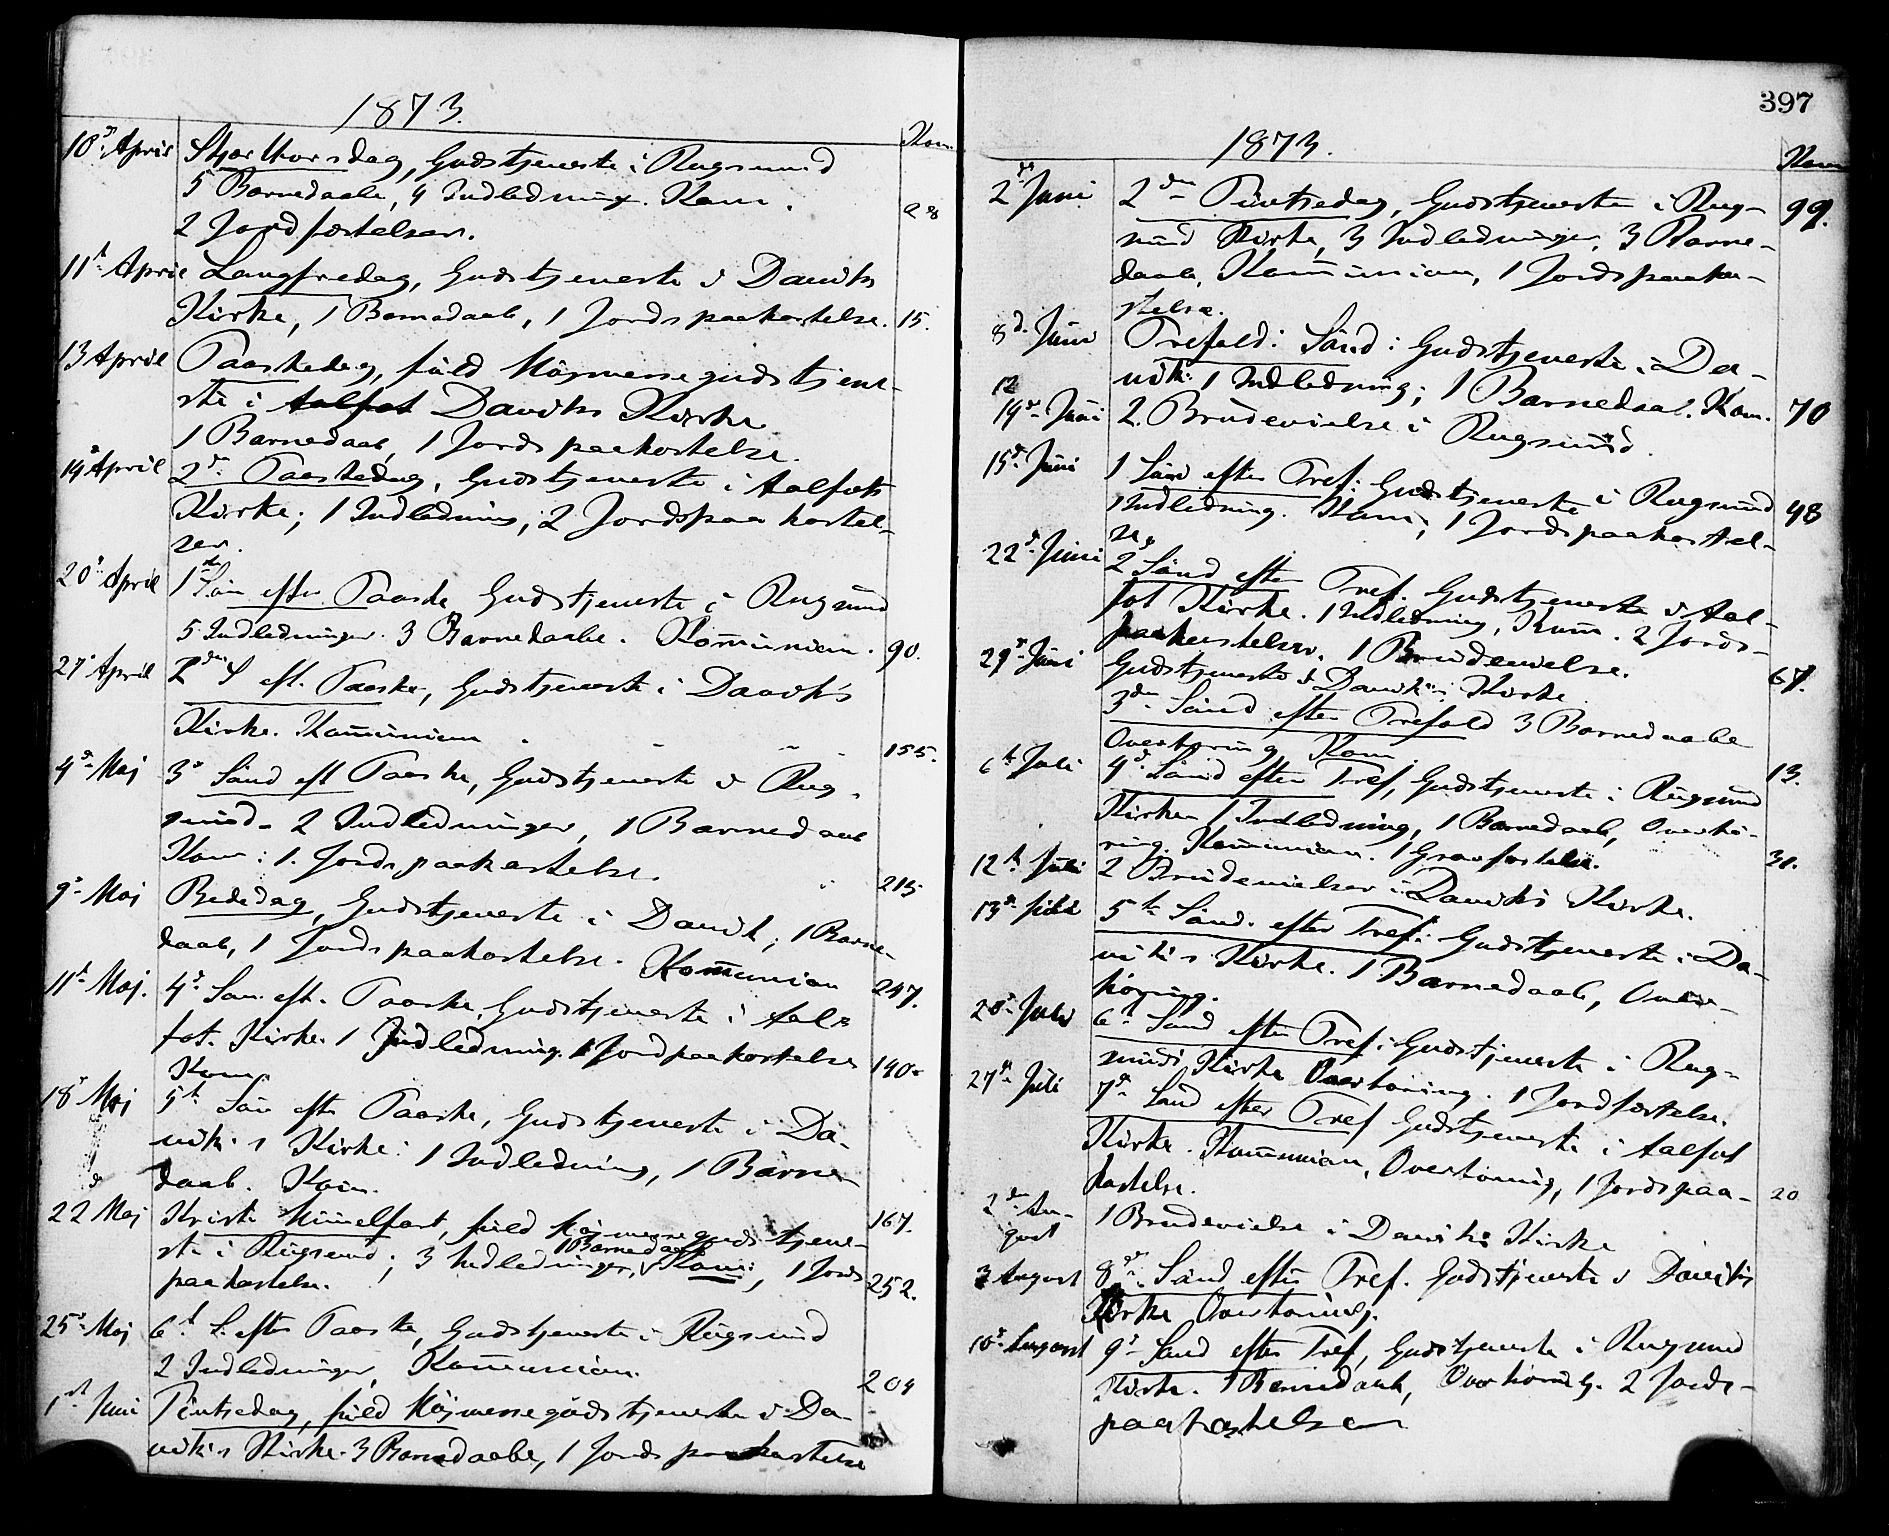 1873.
Kom
10de April Skjærthorsdag, Gudstjeneste i Rugsund
5 Barnedaab, 4 Indledning. Kom. 28
2 Jordfæstelser.
11te April Langfredag, Gudstjeneste i Daviks
Kirke, 1 Barnedaab, 1 Jordspaakastelse. 15.
13 April Paaskedag, fuld Højmessegudstjene-
ste i Aalfot Daviks Kirke
1 Barnedaab, 1 Jordspaakastelse.
14de April 2de Paaskedag, Gudstjeneste i Aalfots
Kirke; 1 Indledning; 2 Jordspaakastel-
ser.
20de April 1ste Sön efter Paaske Gudstjeneste i Rugsund
5 Indledninger. 3 Barnedaabe. Kommunion. 90.
27de April 2den S eft. Paaske, Gudstjeneste i Daviks
Kirke. Kommunion 155.
4de Maj 3de Sönd eft Paaske, Gudstjeneste i Rug-
sund. 2 Indledninger, 1 Barnedaab
Kom: 1. Jordspaakastelse. 215
9de Maj Bededag, Gudstjeneste i Davik; 1 Barne-
daab, 1 Jordspaakastelse. Kommunion 247.
11te Maj. 4de Sön. eft. Paaske, Gudstjeneste i Aal-
fot. Kirke. 1 Indledning. 1 Jordpaakastelse
Kom 140.
18de Maj 5te Sön efter Paaske, Gudstjeneste i Da-
vik's Kirke: 1 Indledning, 1 Barne-
daab. Kom. 167.
22de Maj Kristi Himmelfart, fuld Højmessegudstjene-
1 Barnedaab
ste i Rugsund; 3 Indledninger, Kom:, 1 Jords
paakastelse. 252.
25de Maj 6te S. efter Paaske, Gudstjeneste i Rugsund
2 Indledninger, Kommunion. 204
1ste Juni Pintsedag, fuld Højmessegudstjeneste i Da-
viks Kirke. 3 Barnedaabe, 1 Jordspaakastelse
397
1873.
Kom
2den Juni 2den Pintsedag, Gudstjeneste i Rug- 99.
sund Kirke, 3 Indledninger, 3 Barne-
daab, Kommunion, 1 Jordspaaka-
stelse.
8de Juni Trefold: Sönd: Gudstjeneste i Da-
vik: 1 Indledning; 1 Barnedaab. Kom. 70
12
14de Juni 2. Brudevielse i Rugsund.
15de Juni 1 Sönd efter Tref: Gudstjeneste i Rugsund
1 Indledning. Kom; 1 Jordspaakastel- 48
se.
22de Juni 2 Sönd efter Tref. Gudstjeneste i Aal-
fot Kirke. 1 Indledning, Kom. 2 Jords-
paakastelser. 1 Brudevielse. 67.
29de Juni Gudstjeneste i Davik's Kirke
3de Sönd efter Trefold 3 Barnedaabe
Overhøring Kom. 13.
6te Juli 4de Sönd efter Tref, Gudstjeneste i Rugsund
Kirke 1 Indledning, 1 Barnedaab, Overhø-
ring. Kommunion. 1 Gravfæstelse. 31.
12te Juli 2 Brudevielser i Daviks Kirke.
13de Juli 5te Sönd. efter Tref: Gudstjeneste i Da-
vik's Kirke. 1 Barnedaab, Over-
høring.
20de Juli 6te Sönd efter Tref: Gudstjeneste i Rug-
sunds Kirke Overhøring. 1 Jordfæstelse.
27de Juli 7de Sönd efter Tref Gudstjeneste i Aalfot
Kirke. Kommunion, Overhøring, 1 Jordspaa-
kastelse. 20
2den Au-
gust 1 Brudevielse i Daviks Kirke
3 August 8de Sönd efter Tref. Gudstjeneste i Daviks
Kirke Overhøring.
10de August 9de Sönd efter Tref, Gudstjeneste i Rugsund
Kirke. 1 Barnedaab, Overhöring. 2 Jords-
paakastelser